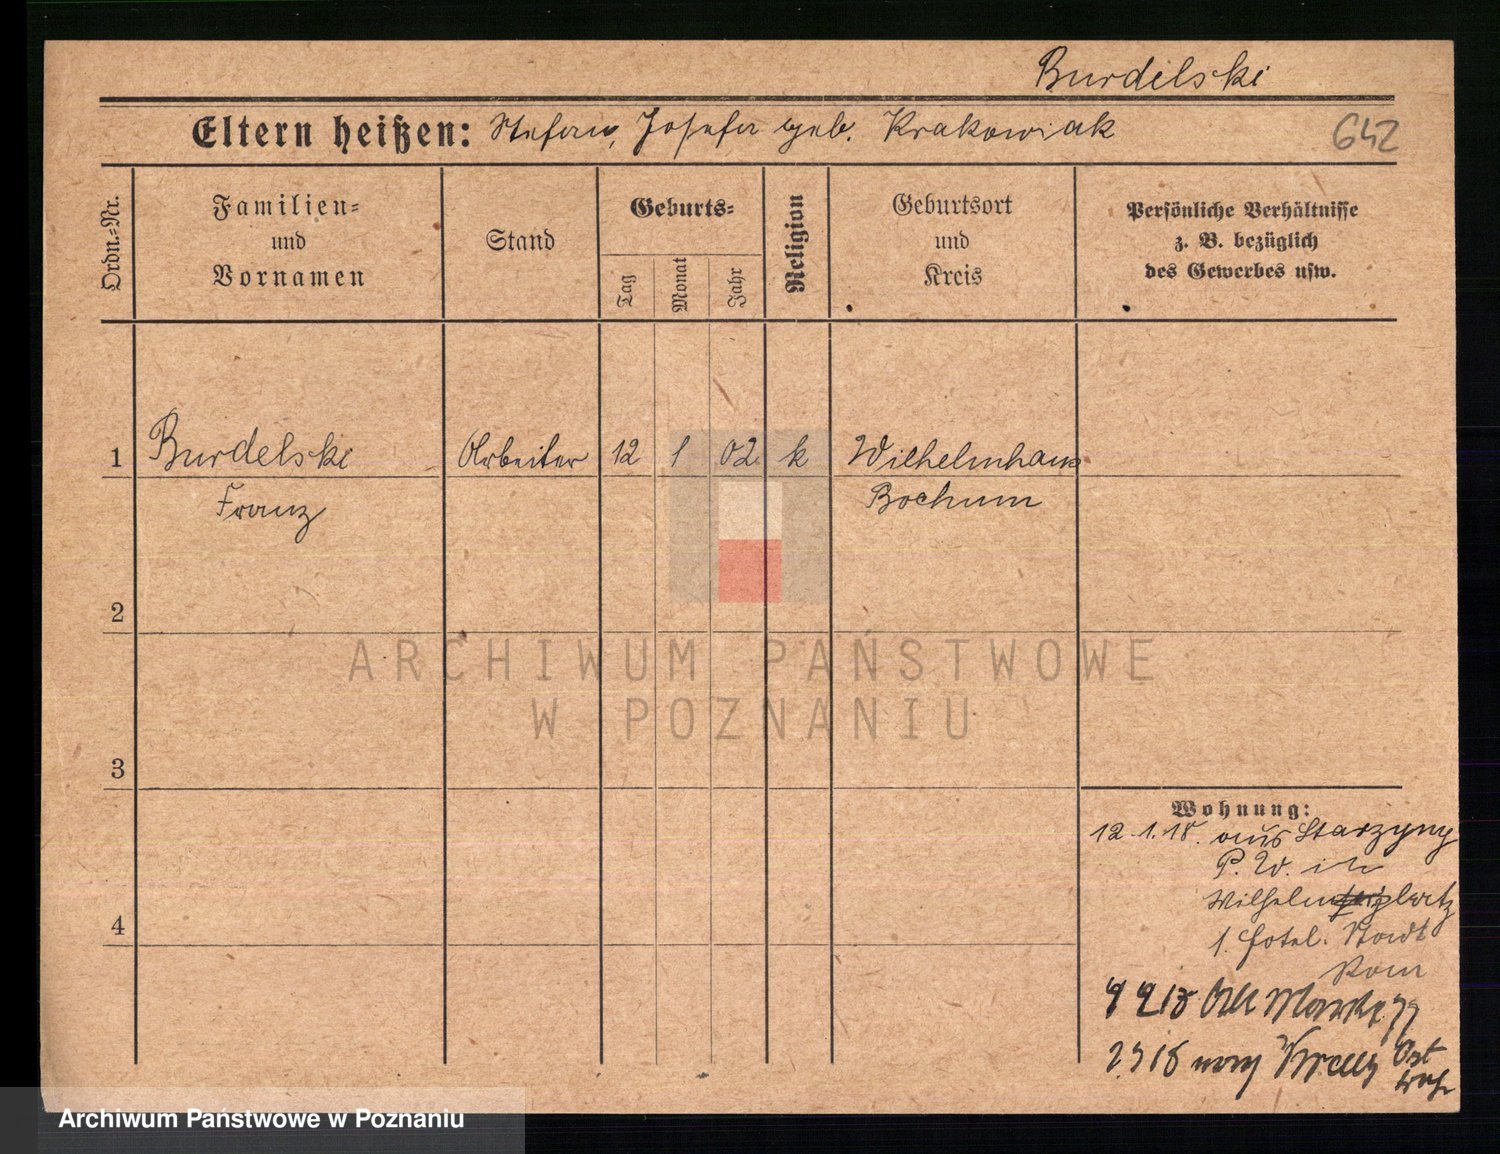 Burdelski
Eltern heißen: Stefan, Josefa geb. Krakowiak
642
Ordn.=Nr.
Familien=
und
Vornamen
Stand
Geburts=
Tag
Monat
Jahr
Religion
Geburtsort
und
Kreis
Persönliche Verhältnisse
z. B. bezüglich
des Gewerbes usw.
1 Burdelski Arbeiter 12 1 02 k Wilhelmhaus
Franz Bochum
2
3
4
Wohnung:
12.1.18. aus Starzyny
P. W. in
Wilhelmsplatz
1. Hotel. Stadt
Rom
Alt Markt
nach
ARCHIWUM PAŃSTWOWE
W POZNANIU
Archiwum Państwowe w Poznaniu